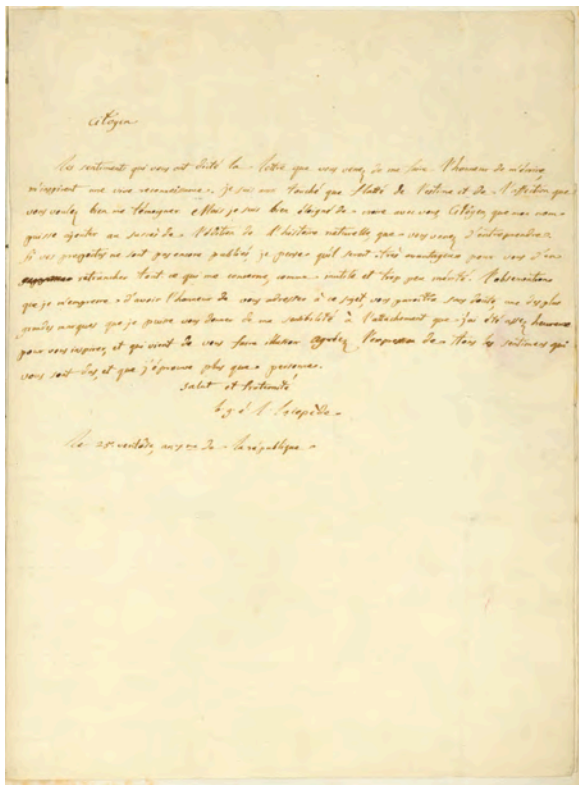 Citoyen
les sentiments qui vous ont dicté la lettre que vous venez de me faire l'honneur de m'écrire,
m'inspirent une vive reconnaissance. je suis touché que flatté de l'estime et de l'affection que
vous voulez bien me témoigner. Mais je suis bien éloigné de croire avec vous Citoyen que mon nom
puisse ajouter au succès de l'édition de l'histoire naturelle, que vous venez d'entreprendre.
Si vos prospectus ne sont pas encore publiés, je pense qu'il serait très avantageux pour vous d'en
retrancher tout ce qui me concerne, comme inutile et trop peu mérité. l'observation
que je m'empresse d'avoir l'honneur de vous adresser à ce sujet, vous paroîtra sans doute, une des plus
grandes marques que je puisse vous donner de ma sensibilité à l'attachement que j'ai été assez heureux
pour vous inspirer, et qui vient de vous faire illusion. agréez l'expression de tous les sentiments qui
vous sont dus, et que j'éprouve plus que personne.
salut et fraternité
b. g. é. l. lacepède
le 28 ventôse, an de la république